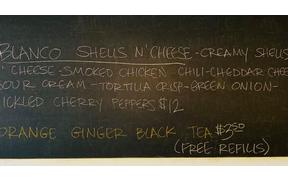 BLANCO SHELLS N' CHEESE-CREAMY SHELLS
N' CHEESE-SMOKED CHICKEN CHILI-CHEDDAR CHEE
SOUR CREAM-TORTILLA CRISP-GREEN ONION-
PICKLED CHERRY PEPPERS $12
ORANGE GINGER BLACK TEA $3.50
(FREE REFILLS)